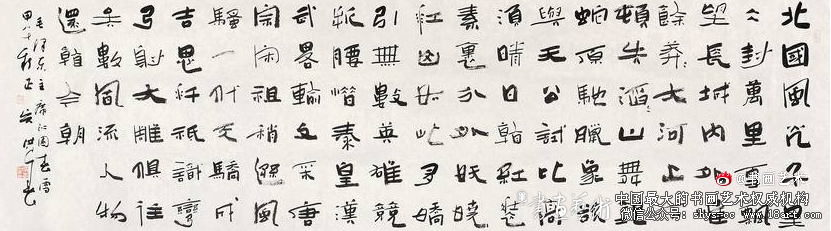 北國風光千里
冰封萬里雪飄
望長城內外惟
餘莽〻大河上下
頓失滔〻山舞銀
蛇原馳臘象欲
與天公試比高
須晴日看紅裝
素裹分外妖嬈
江山如此多嬌
引無數英雄競
折腰惜秦皇漢
武略輸文采唐
宗宋祖稍遜風
騷一代天驕成
吉思汗祇識彎
弓射大雕俱往
矣數風流人物
還看今朝
毛澤東主席沁園春雪
中国最大的书画艺术权威机构